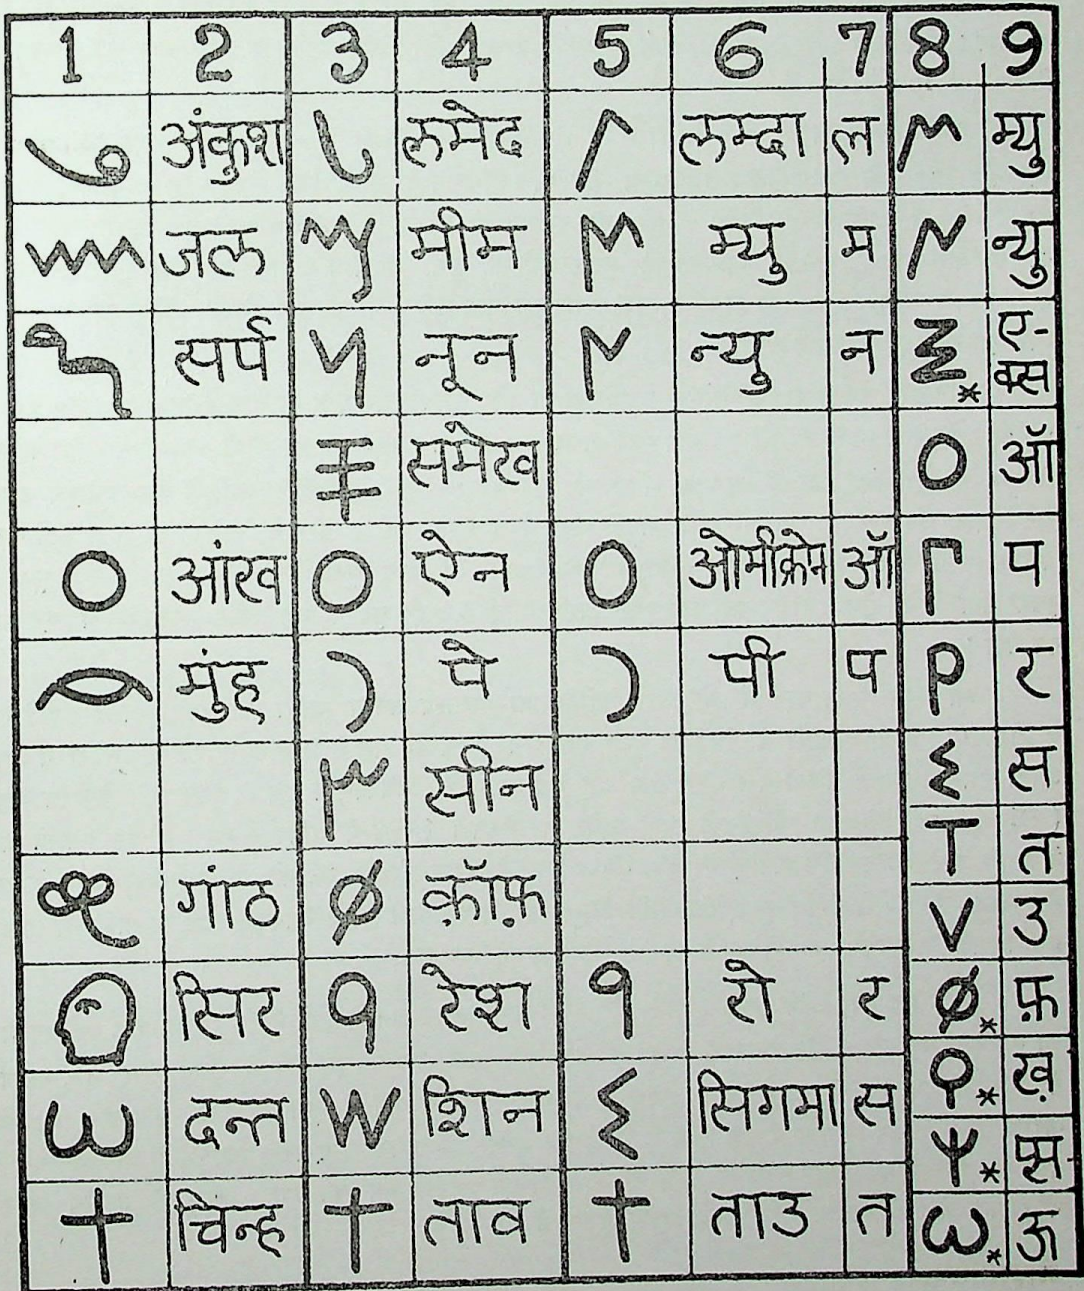 1 2 3 4 5 6 7 8 9
अंकुश लमेद लम्दा ल म्यु
जल मीम म्यु म न्यु
सर्प नून न्यु न * ए-
क्स
समेख ऑ
आंख ऐन ओमीक्रोन ऑ प
मुंह पे पी प र
सीन स
त
गांठ क़ॉफ़ उ
सिर रेश रो र * फ़
* ख़
दन्त शिन सिगमा स * प्स
चिन्ह ताव ताउ त * ऊ